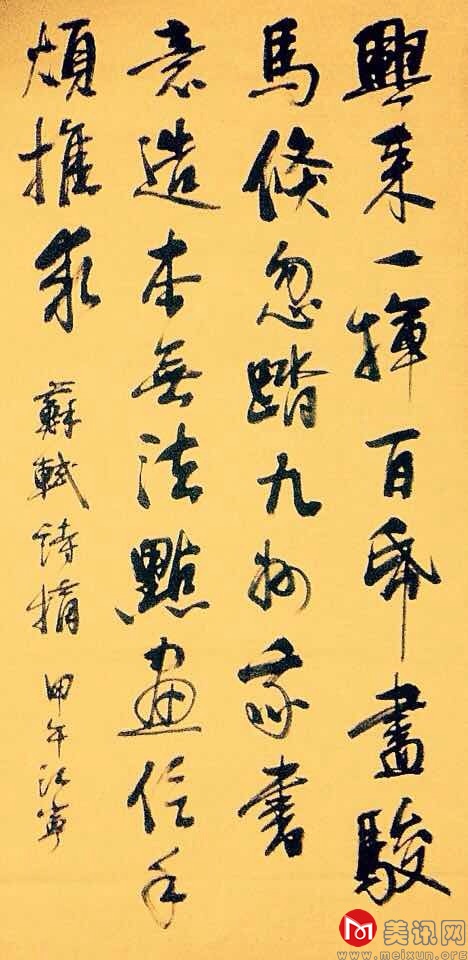 興來一揮百紙盡駿
馬倏忽踏九州我書
意造本無法點畫信手
煩推求
蘇軾詩摘
甲午江寧
美讯网
www.meixun.org